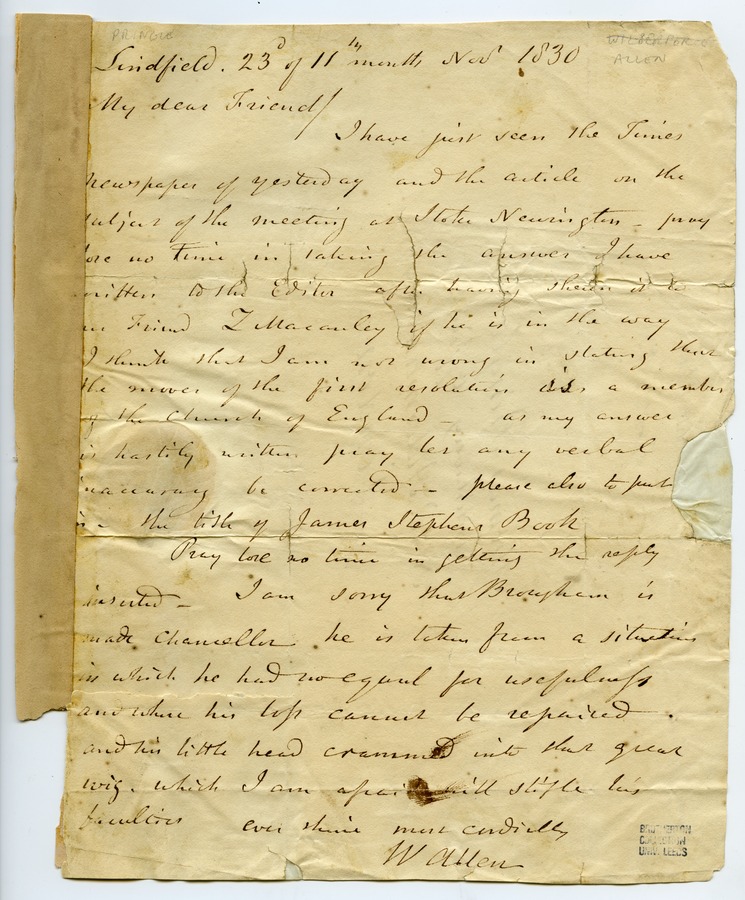 PRINGLE
WILBERFORCE
ALLEN
Lindfield. 23d of 11th month Nov 1830
My dear Friend/
I have just seen the Times
newspaper of yesterday and the article on the
subject of the meeting at Stoke Newington - pray
lose no time in taking the answer I have
written to the Editor after having shewn it to
our Friend Z Macauley if he is in the way
I think that I am not wrong in stating that
the mover of the first resolution is a member
of the Church of England - as my answer
is hastily written pray let any verbal
inaccuracy be corrected - please also to put
in the title of James Stephens Book
Pray lose no time in getting the reply
inserted - I am sorry that Brougham is
made Chancellor he is taken from a situation
in which he had no equal for usefulness
and where his loss cannot be repaired.
and his little head crammed into that great
wig. which I am afraid will stifle his
faculties ever thine most cordially
W Allen
BROTHERTON
COLLECTION
UNIV. LEEDS